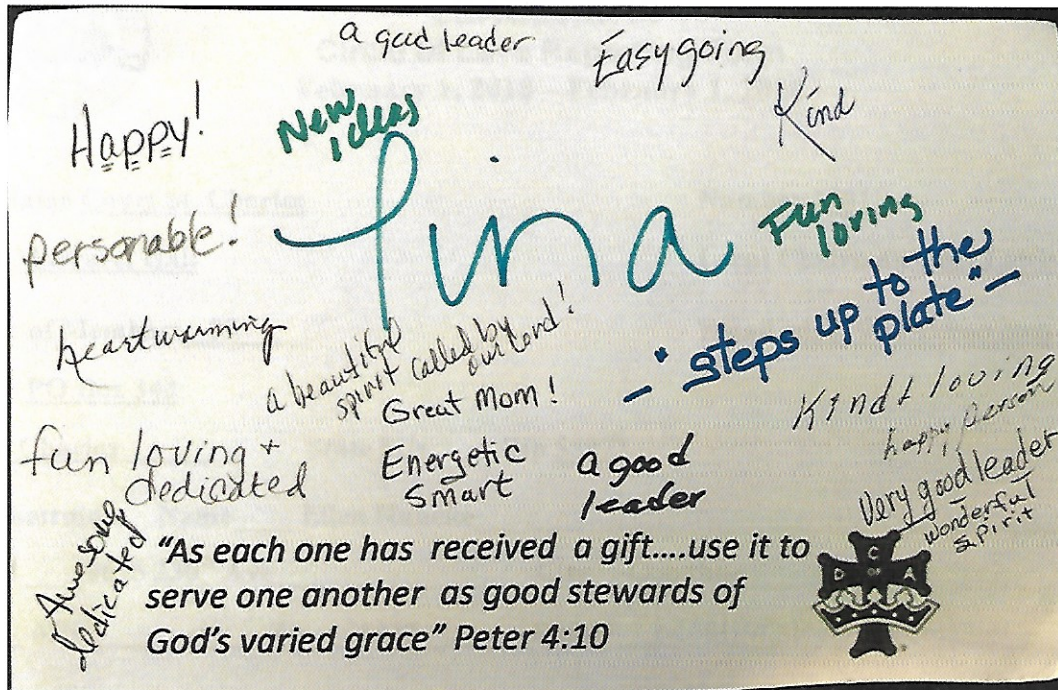 a good leader
Easy going
Kind
Happy!
New
Ideas
Tina
personable!
Fun
loving
"steps up to the
plate"
heartwarming
a beautiful
spirit called by
our Lord!
Great Mom!
Kind & loving
happy person
fun loving +
dedicated
Energetic
Smart
a good
leader
Very good leader
wonderful
spirit
Awesome
dedicated
"As each one has received a gift....use it to
serve one another as good stewards of
God's varied grace" Peter 4:10
C
D OF A